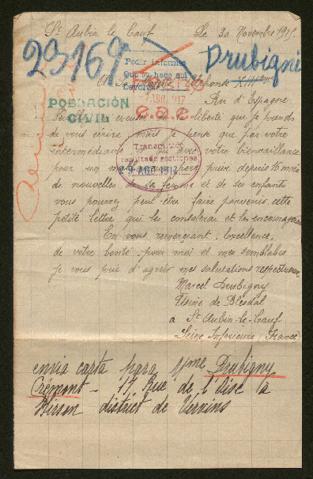 St Aubin le Cauf Le 30 Novembre 191
23169 Drubigny
Pour informer
Alphonse XIII
Roi d'Espagne
POBLACIÓN
CIVIL
excuser la liberté que je prends
de vous écrire, mais je pense que par votre
intermédiaire votre bienveillance
pour privé depuis 16 mois
de nouvelles de sa femme et de ses enfants
vous pourrez peut être faire parvenir cette
petite lettre qui les consolerai et les encouragera
En vous remerçiant, Excellence,
de votre bonté pour moi et mes semblables
je vous prie d'agréer mes salutations respectueuses
Marcel Drubigny
Usine de
a St Aubin-le-Cauf
Seine Inférieure France
envia carta para Mme Drubigny
Crémont - 17 Rue de l'Oise la
Hirson district de Vervins